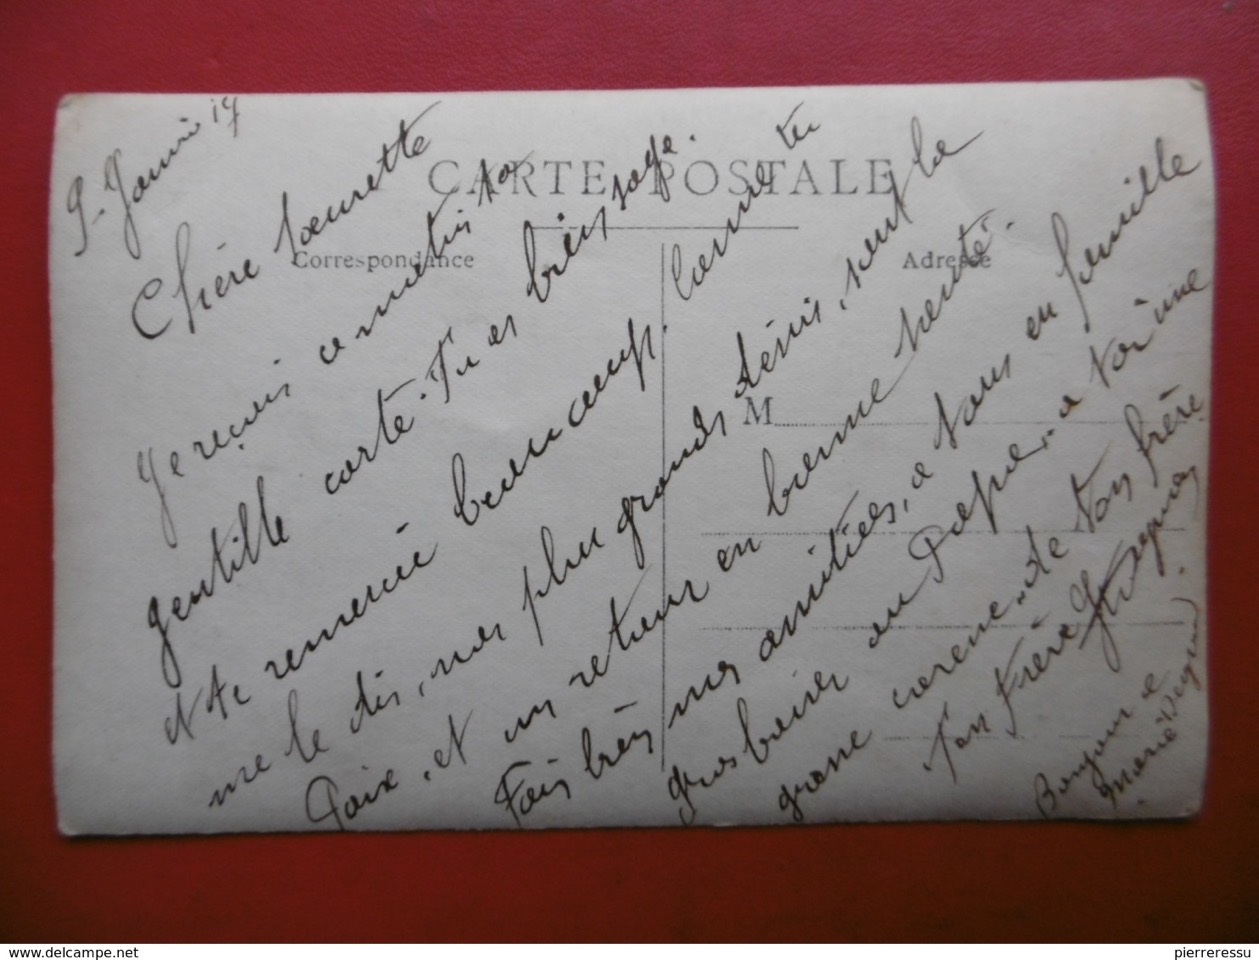 9. Janvier 17
CARTE POSTALE
Correspondance
Adresse
M
Chère Sœurette
Je reçois ce matin ta
gentille carte. Tu es bien sage.
et te remercie beaucoup. Comme tu
me le dis, nos plus grands désirs, sont la
Paix, et un retour en bonne santé.
Fais bien nos amitiés, a tous en famille
gros baiser au Papa, a toi une
grosse caresse, de ton frère
Ton Frère
Bonjour a
Marie
www.delcampe.net
pierreressu